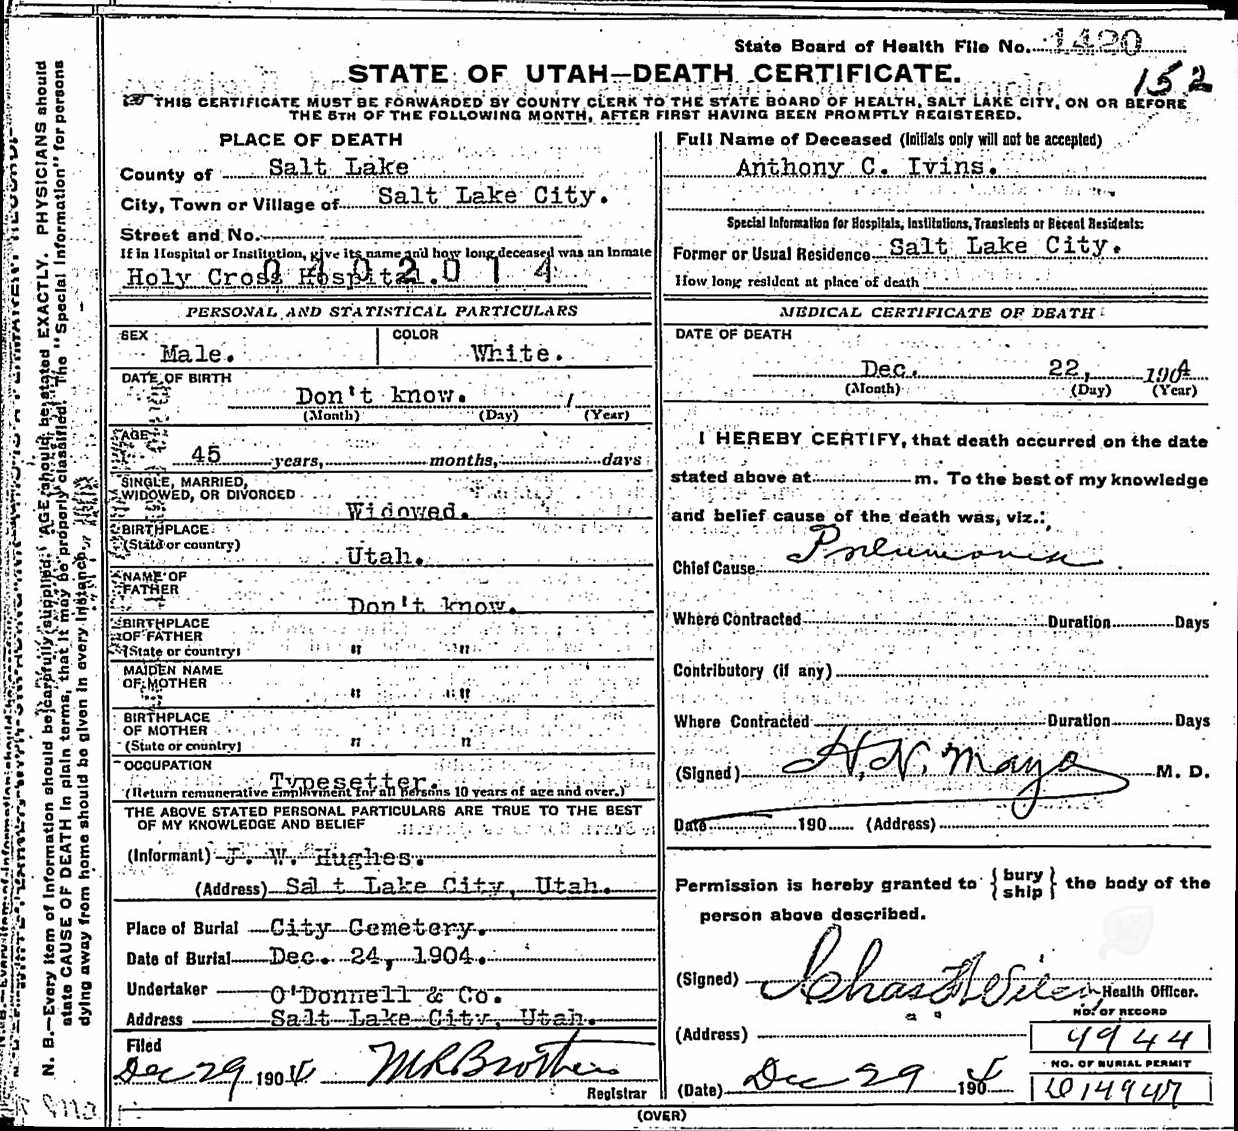 State Board of Health File No. 1420
152
STATE OF UTAH—DEATH CERTIFICATE.
THIS CERTIFICATE MUST BE FORWARDED BY COUNTY CLERK TO THE STATE BOARD OF HEALTH, SALT LAKE CITY, ON OR BEFORE
THE 5TH OF THE FOLLOWING MONTH, AFTER FIRST HAVING BEEN PROMPTLY REGISTERED.
PLACE OF DEATH
County of Salt Lake
City, Town or Village of Salt Lake City.
Street and No.
If in Hospital or Institution, give its name and how long deceased was an inmate
0102014
Holy Cross Hospital.
Full Name of Deceased (Initials only will not be accepted)
Anthony C. Ivins.
Special Information for Hospitals, Institutions, Transients or Recent Residents:
Former or Usual Residence Salt Lake City.
How long resident at place of death
PERSONAL AND STATISTICAL PARTICULARS
SEX
Male.
COLOR
White.
DATE OF BIRTH
Don't know.
(Month) (Day) (Year)
AGE
45 years, months, days
SINGLE, MARRIED,
WIDOWED, OR DIVORCED
Widowed.
BIRTHPLACE
(State or country)
Utah.
NAME OF
FATHER
Don't know.
BIRTHPLACE
OF FATHER
(State or country)
" "
MAIDEN NAME
OF MOTHER
" "
BIRTHPLACE
OF MOTHER
(State or country)
" "
OCCUPATION
Typesetter.
(Return remunerative employment for all persons 10 years of age and over.)
THE ABOVE STATED PERSONAL PARTICULARS ARE TRUE TO THE BEST
OF MY KNOWLEDGE AND BELIEF
(Informant) J. W. Hughes.
(Address) Salt Lake City, Utah.
Place of Burial City Cemetery.
Date of Burial Dec. 24, 1904.
Undertaker O'Donnell & Co.
Address Salt Lake City, Utah.
Filed
Dec 29 1904
Registrar
MEDICAL CERTIFICATE OF DEATH
DATE OF DEATH
Dec. 22, 1904
(Month) (Day) (Year)
I HEREBY CERTIFY, that death occurred on the date
stated above at m. To the best of my knowledge
and belief cause of the death was, viz.:
Chief Cause Pneumonia
Where Contracted Duration Days
Contributory (if any)
Where Contracted Duration Days
(Signed) H. N. Mayo M. D.
Date 190 (Address)
Permission is hereby granted to {bury ship} the body of the
person above described.
(Signed) Chas Health Officer.
(Address)
NO. OF RECORD
4944
NO. OF BURIAL PERMIT
(Date) Dec 29 1904
(OVER)
N. B.—Every item of information should be carefully supplied. AGE should be stated EXACTLY. PHYSICIANS should
state CAUSE OF DEATH in plain terms, that it may be properly classified. The "Special Information" for persons
dying away from home should be given in every instance.